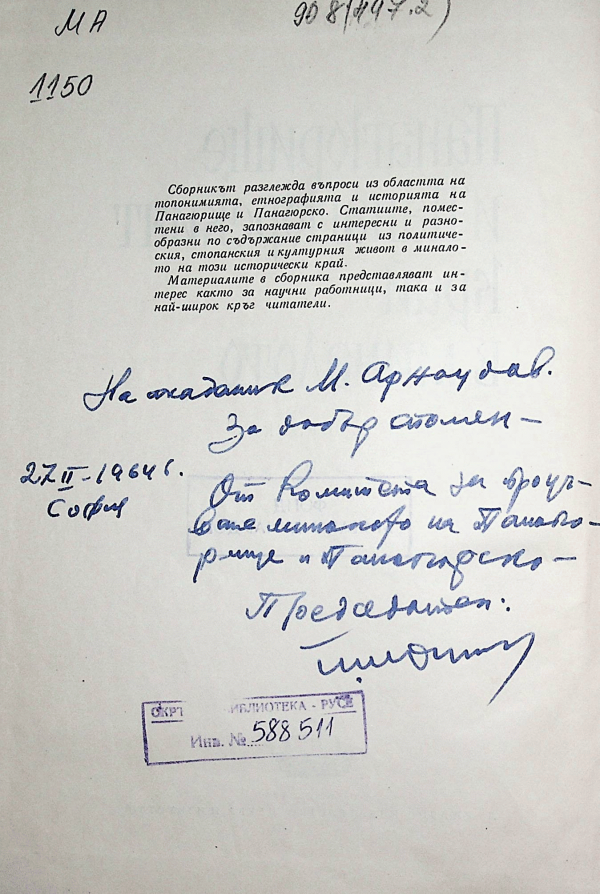 МА
908(497.2)
1150
Сборникът разглежда въпроси из областта на
топонимията, етнографията и историята на
Панагюрище и Панагюрско. Статиите, помес-
тени в него, запознават с интересни и разно-
образни по съдържание страници из политиче-
ския, стопанския и културния живот в минало-
то на този исторически край.
Материалите в сборника представляват ин-
терес както за научни работници, така и за
най-широк кръг читатели.
На академик М. Арнаудов.
За добър спомен —
27 II - 1964 г.
София
От Комитета за проуч-
ване миналото на Панагю-
рище и Панагюрско —
Председател:
ОКРЪ БИБЛИОТЕКА - РУСЕ
Инв. № 588511